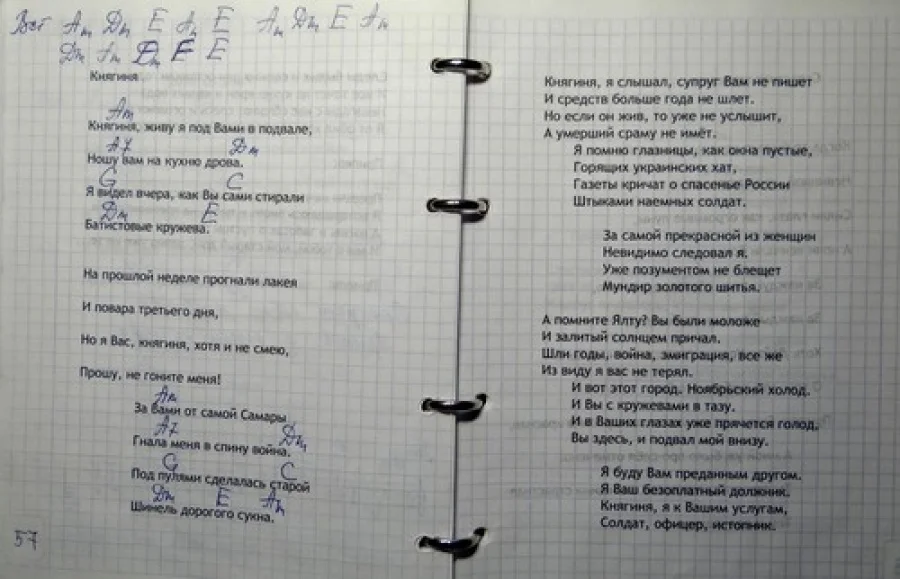 Вст Am Dm E Am E Am Dm E Am
Dm Am Dm E E
Княгиня
Am
Княгиня, живу я под Вами в подвале,
A7 Dm
Ношу вам на кухню дрова.
G C
Я видел вчера, как Вы сами стирали
Dm E
Батистовые кружева.
На прошлой неделе прогнали лакея
И повара третьего дня,
Но я Вас, княгиня, хотя и не смею,
Прошу, не гоните меня!
Am
За Вами от самой Самары
A7 Dm
Гнала меня в спину война.
G C
Под пулями сделалась старой
Dm E Am
Шинель дорогого сукна.
57
Княгиня, я слышал, супруг Вам не пишет
И средств больше года не шлет.
Но если он жив, то уже не услышит,
А умерший сраму не имёт.
Я помню глазницы, как окна пустые,
Горящих украинских хат,
Газеты кричат о спасенье России
Штыками наемных солдат.
За самой прекрасной из женщин
Невидимо следовал я.
Уже позументом не блещет
Мундир золотого шитья.
А помните Ялту? Вы были моложе
И залитый солнцем причал.
Шли годы, война, эмиграция, все же
Из виду я вас не терял.
И вот этот город. Ноябрьский холод.
И Вы с кружевами в тазу.
И в Ваших глазах уже прячется голод,
Вы здесь, и подвал мой внизу.
Я буду Вам преданным другом.
Я Ваш безоплатный должник.
Княгиня, я к Вашим услугам,
Солдат, офицер, истопник.